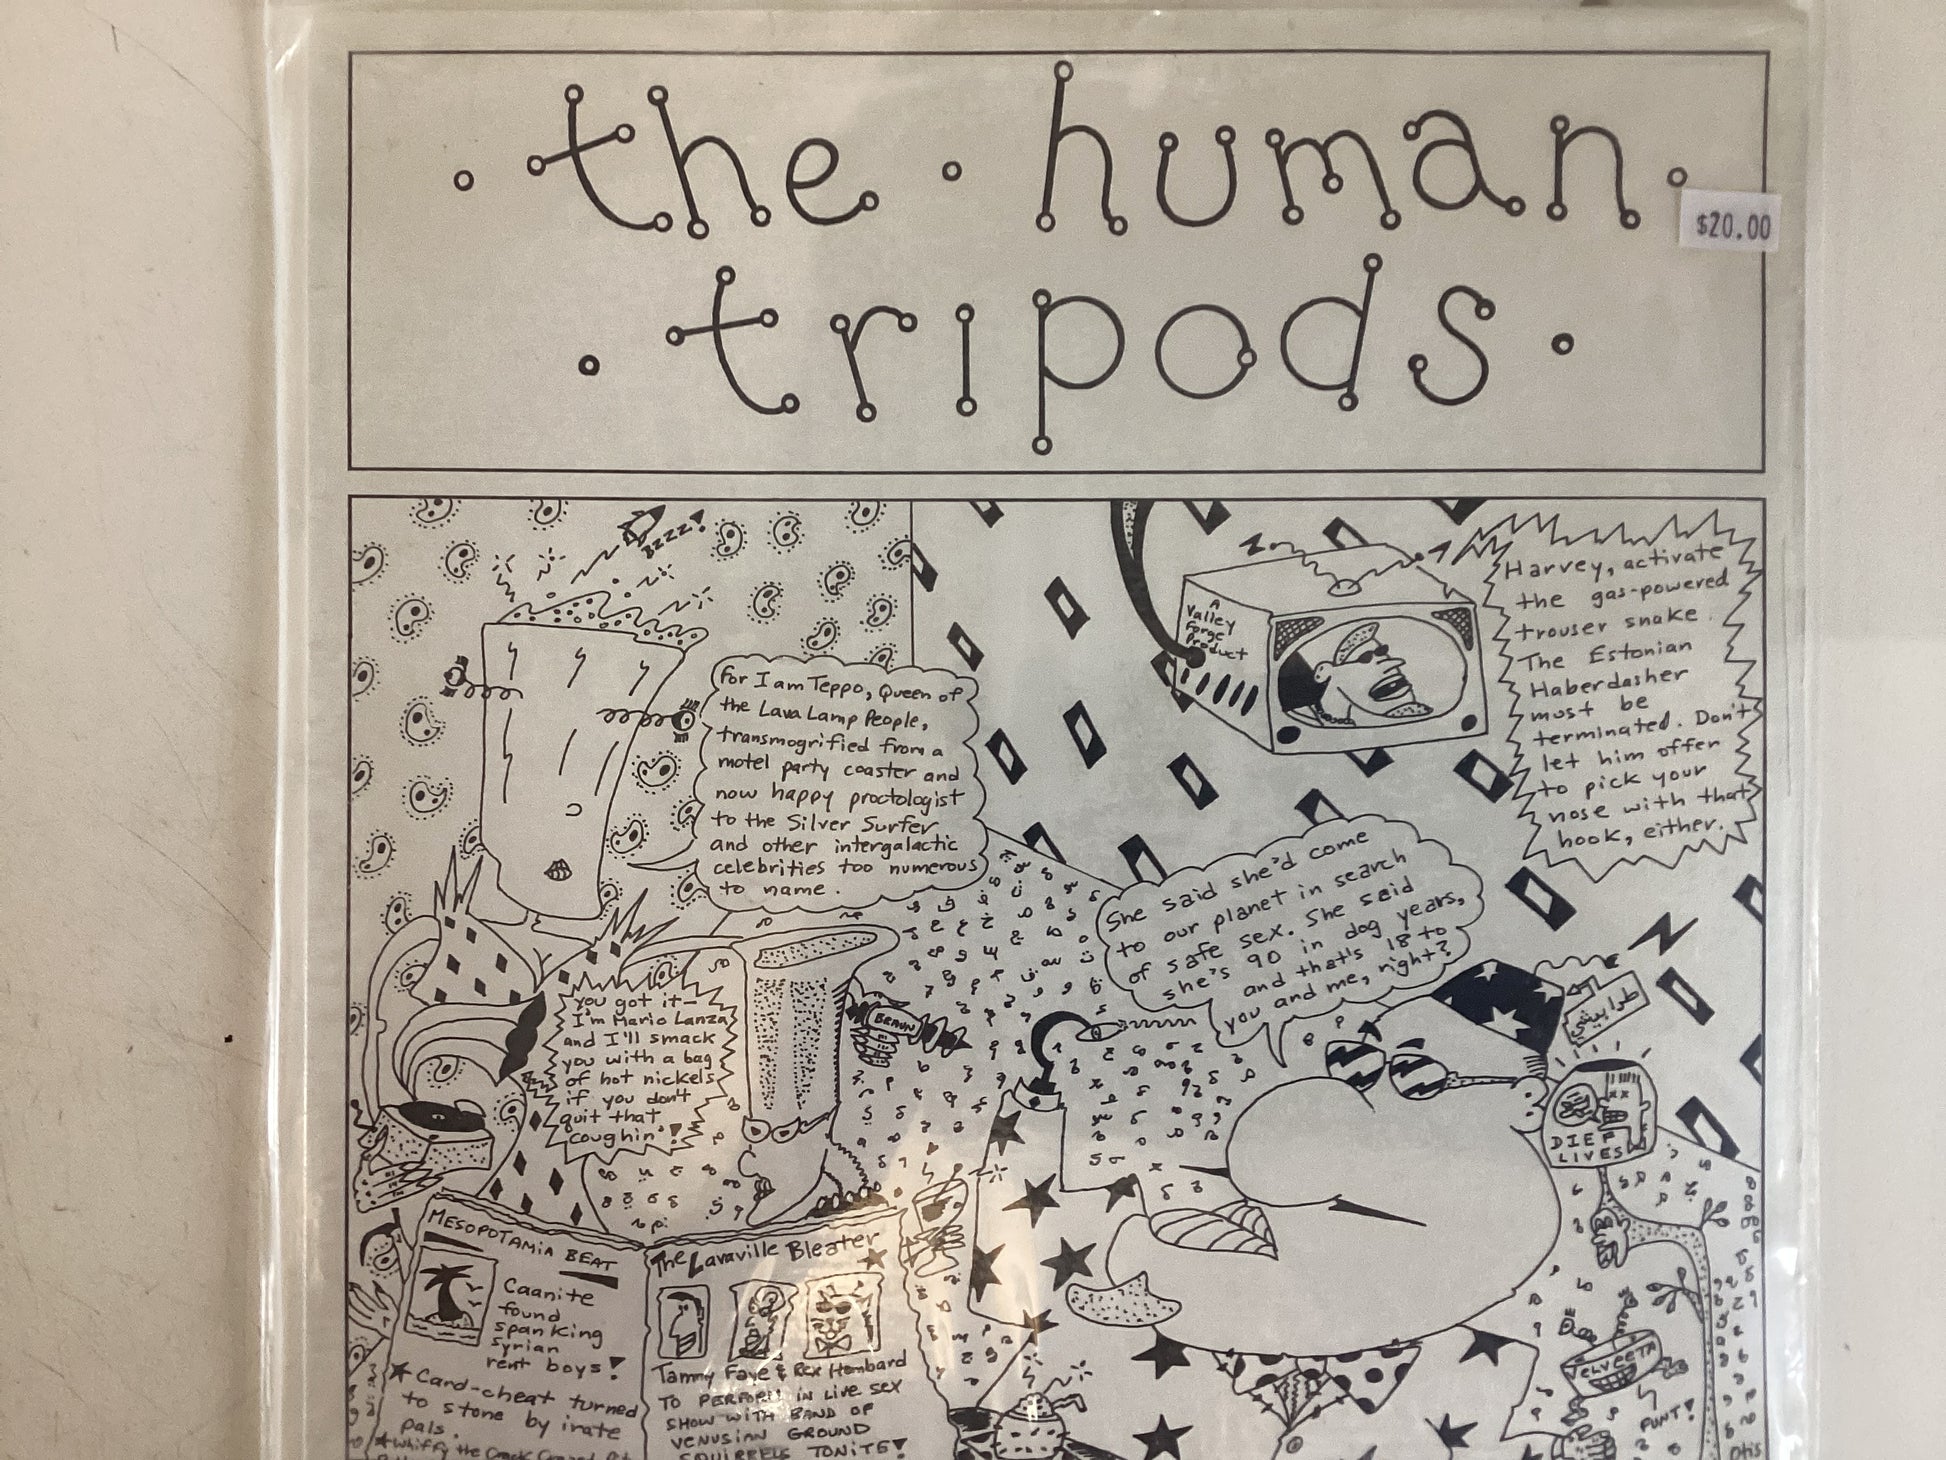 the human
$20.00
tripods
Bzzz!
For I am Teppo, Queen of
the Lava Lamp People,
transmogrified from a
motel party coaster and
now happy proctologist
to the Silver Surfer
and other intergalactic
celebrities too numerous
to name.
A
Valley
Forge
Product
Harvey, activate
the gas-powered
trouser snake.
The Estonian
Haberdasher
must be
terminated. Don't
let him offer
to pick your
nose with that
hook, either.
She said she'd come
to our planet in search
of safe sex. She said
she's 90 in dog years,
and that's 18 to
you and me, right?
You got it—
I'm Mario Lanza
and I'll smack
you with a bag
of hot nickels
if you don't
quit that
coughin'!
BRAUN
DIEF
LIVES
MESOPOTAMIA BEAT
Caanite
found
spanking
syrian
rent boys!
Card-cheat turned
to stone by irate
pals.
Whiffy the Crack
The Lavaville Bleater
Tammy Faye & Rex Hombard
TO PERFORM IN LIVE SEX
SHOW WITH BAND OF
VENUSIAN GROUND
SQUIRRELS TONITE!
VELVEETA
PUNT!
Otis